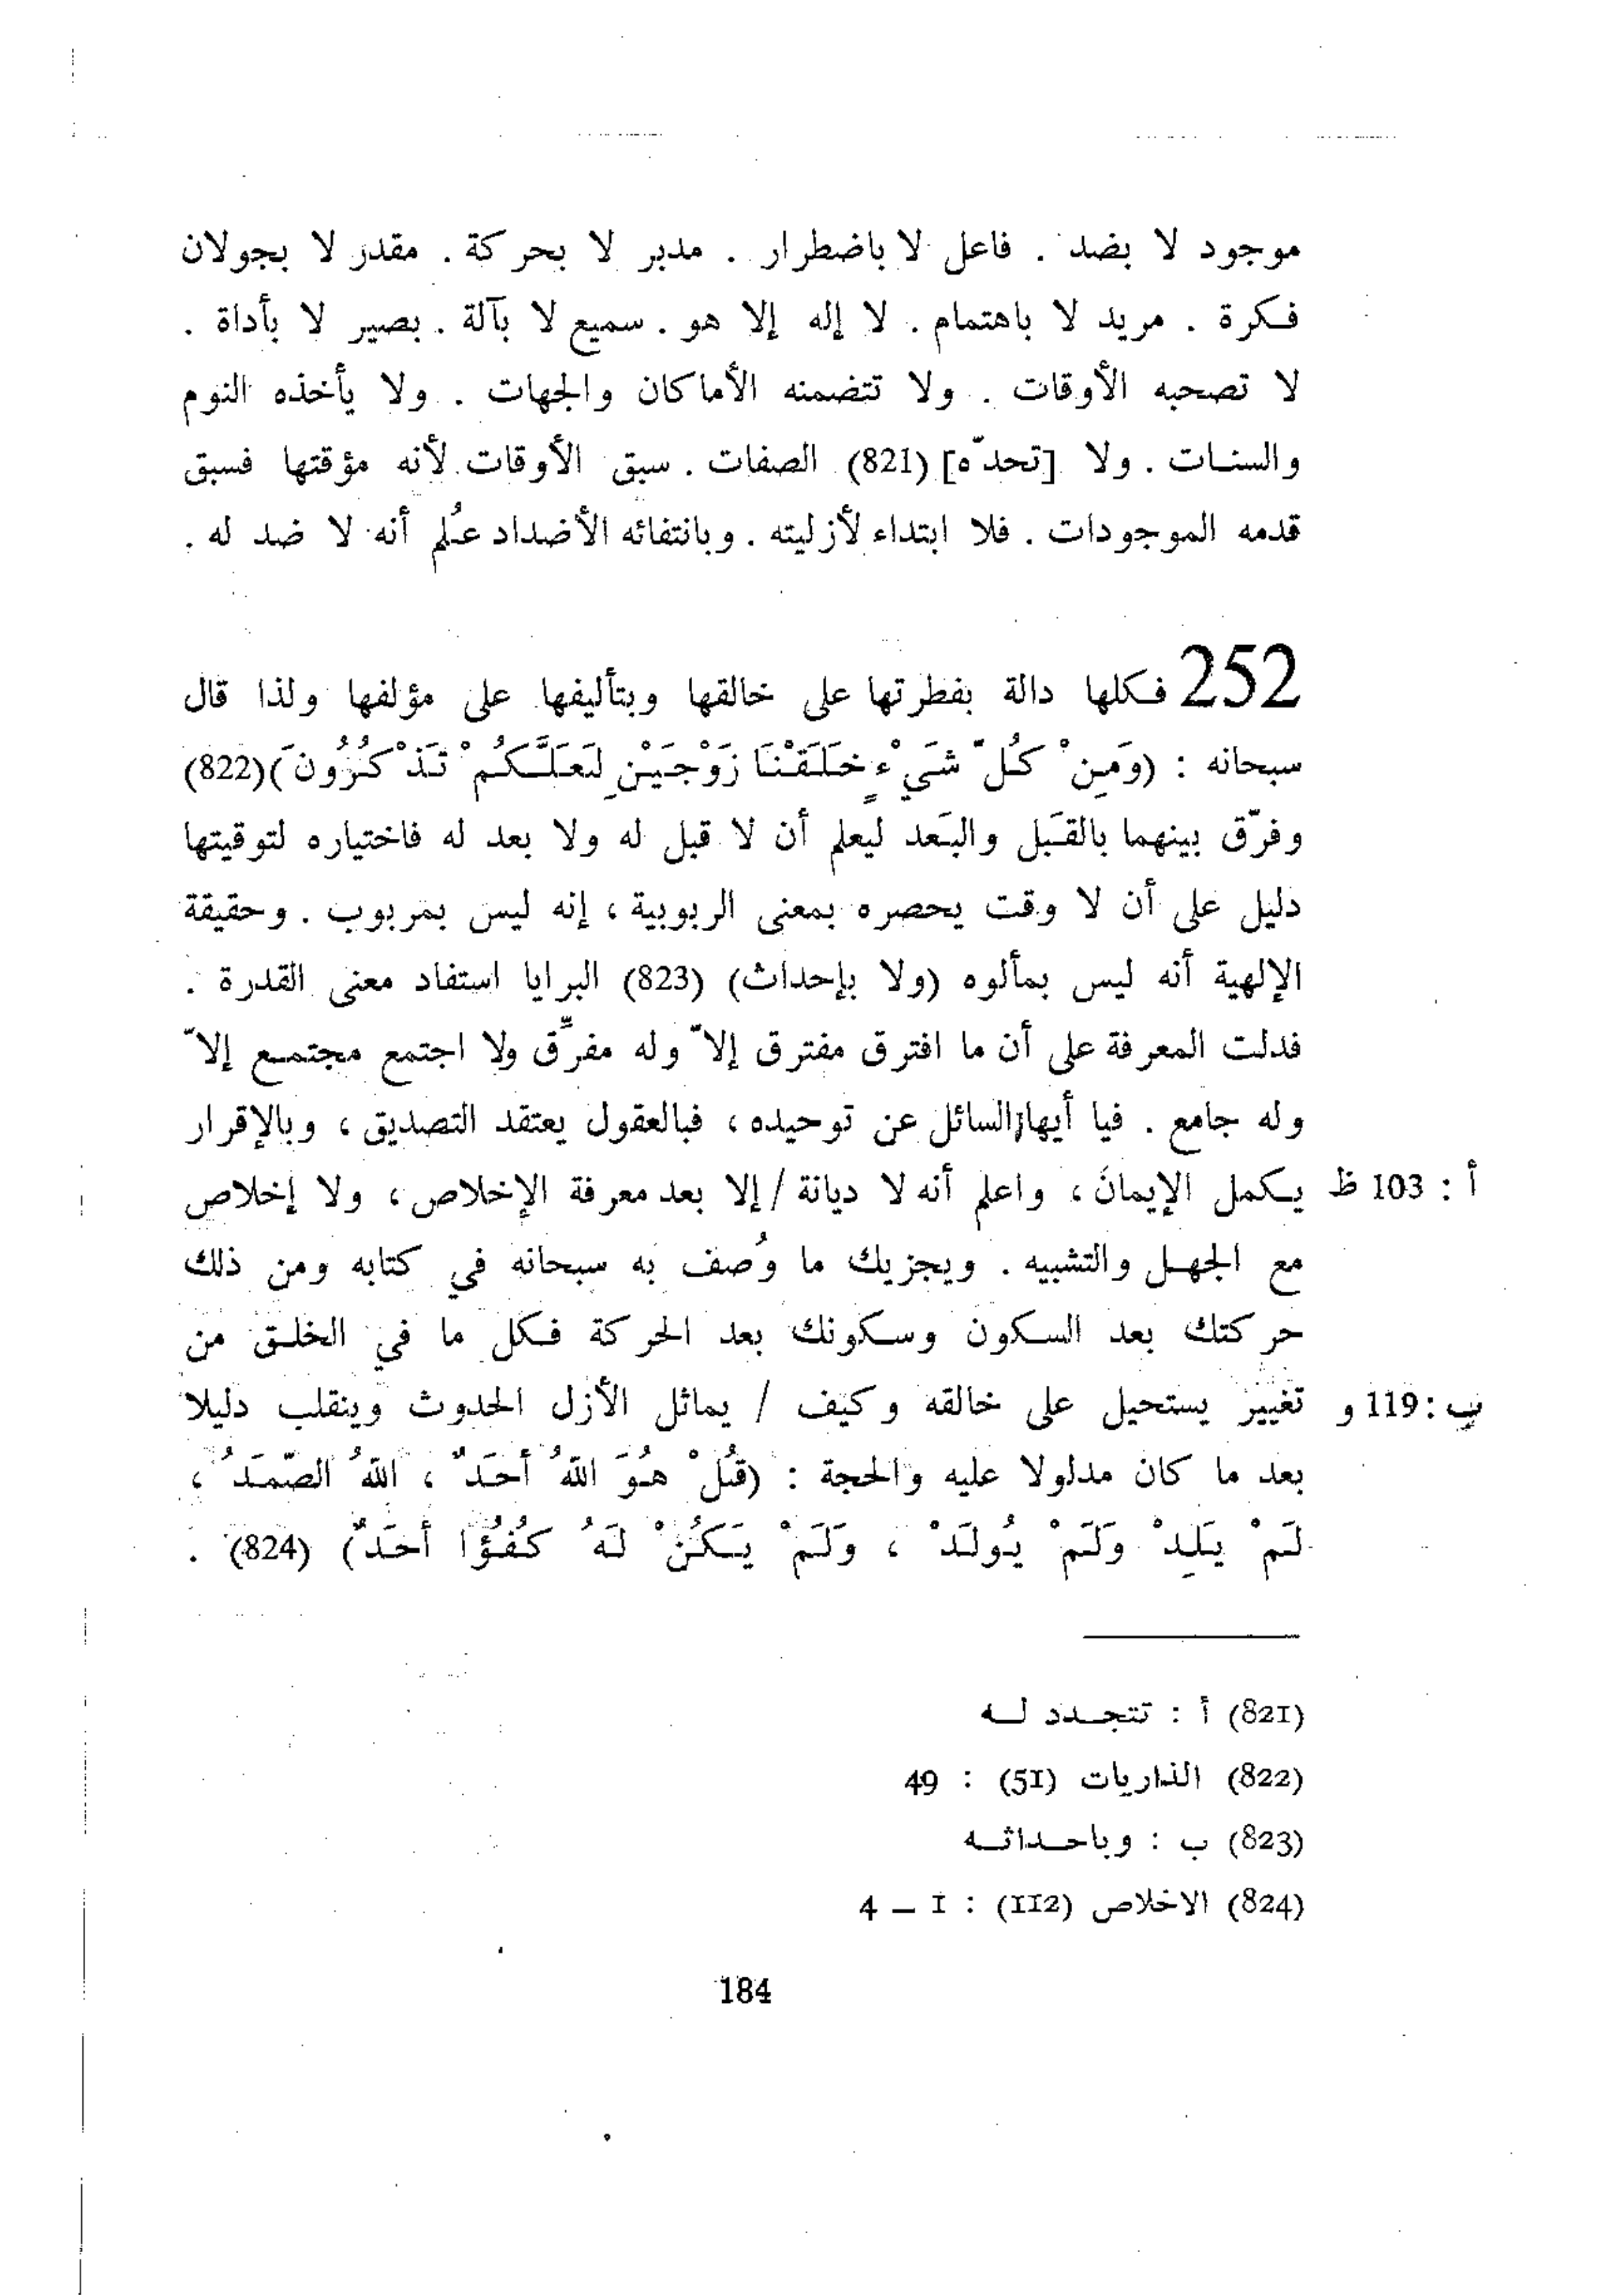 موجود لا بضد . فاعل لا باضطرار . مدبر لا بحركة . مقدر لا بجولان
فكرة . مريد لا باهتمام . لا إله إلا هو . سميع لا بآلة . بصير لا بأداة .
لا تصحبه الأوقات . ولا تتضمنه الأماكان والجهات . ولا يأخذه النوم
والسنات . ولا [تحدّه] (821) الصفات . سبق الأوقات لأنه مؤقتها فسبق
قدمه الموجودات . فلا ابتداء لأزليته . وبانتفائه الأضداد عُلم أنه لا ضد له .
252 فكلها دالة بفطرتها على خالقها وبتأليفها على مؤلفها ولذا قال
سبحانه : (وَمِنْ كُلّ شَيْءٍ خَلَقْنَا زَوْجَيْنِ لَعَلَّكُمْ تَذْكُرُونَ) (822)
وفرّق بينهما بالقَبل والبَعد ليعلم أن لا قبل له ولا بعد له فاختياره لتوقيتها
دليل على أن لا وقت يحصره بمعنى الربوبية ، إنه ليس بمربوب . وحقيقة
الإلهية أنه ليس بمألوه (ولا بإحداث) (823) البرايا استفاد معنى القدرة .
فدلت المعرفة على أن ما افترق مفترق إلاّ وله مفرِّق ولا اجتمع مجتمع إلاّ
وله جامع . فيا أيها السائل عن توحيده ، فبالعقول يعتقد التصديق ، وبالإقرار
أ : 103 ظ يكمل الإيمانَ ، واعلم أنه لا ديانة / إلا بعد معرفة الإخلاص ، ولا إخلاص
مع الجهل والتشبيه . ويجزيك ما وُصف به سبحانه في كتابه ومن ذلك
حركتك بعد السكون وسكونك بعد الحركة فكل ما في الخلق من
ب : 119 و تغيير يستحيل على خالقه وكيف / يماثل الأزل الحدوث وينقلب دليلا
بعد ما كان مدلولا عليه والحجة : (قُلْ هُوَ اللهُ أحَدٌ ، اللهُ الصّمَدُ ،
لَمْ يَلِدْ وَلَمْ يُولَدْ ، وَلَمْ يَكُنْ لَهُ كُفُؤًا أحَدٌ) (824) .
(821) أ : تتجدد له
(822) الذاريات (51) : 49
(823) ب : وباحداثه
(824) الاخلاص (112) : 1 – 4
184